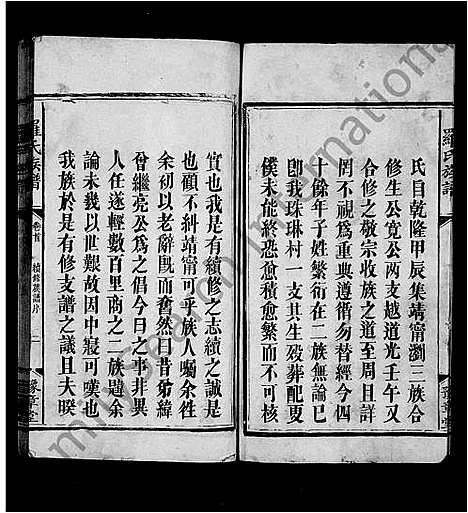 氏自乾隆甲辰集靖甯瀏三族合
修生公寬公兩支越道光壬午又
合修之敬宗收族之道至周且詳
罔不視爲重典遵循勿替經今四
十餘年子姓繁衍在二族無論已
卽我珠琳村一支其生歿葬配更
僕未能終恐愈積愈繁而不可核
實也我是有續修之志續之誠是
也顧不糾靖甯可乎族人囑余往
余初以老辭旣而奮然曰昔弟緯
曾繼亮公爲之倡今日之事非異
人任遂輕數百里商之二族遑余
論未幾以世艱故因中寢可嘆也
我族於是有修支譜之議且夫睽
羅氏族譜
卷首
續修族譜序
二
豫章堂
羅氏族譜
豫章堂
mily
search
International